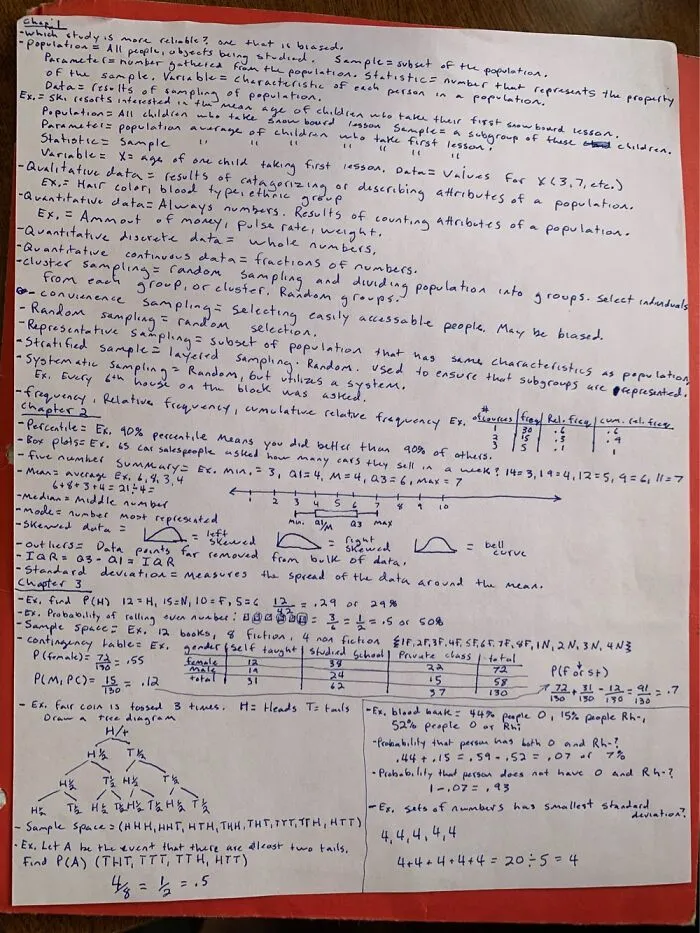 Chap. 1
-which study is more reliable? one that is biased.
-population = All people, objects being studied. Sample = subset of the population.
Parameter = number gathered from the population. Statistic = number that represents the property
of the sample. Variable = characteristic of each person in a population.
Data = results of sampling of population.
Ex. = Ski resorts interested in the mean age of children who take their first snow board lesson.
Population = All children who take snow board lesson Sample = a subgroup of these children.
Parameter = population average of children who take first lesson.
Statistic = Sample " " " " " " "
Variable = X = age of one child taking first lesson. Data = Values for X (3, 7, etc.)
-Qualitative data = results of catagorizing or describing attributes of a population.
Ex. = Hair color, blood type, ethnic group
-Quantitative data = Always numbers. Results of counting attributes of a population.
Ex. = Ammout of money, pulse rate, weight.
-Quantitative discrete data = whole numbers,
-Quantitative continuous data = fractions of numbers.
-cluster sampling = random sampling and dividing population into groups. Select individuals
from each group, or cluster. Random groups.
- convienence sampling = selecting easily accessable people. May be biased.
- Random sampling = random selection.
-Representative sampling = subset of population that has same characteristics as population
-Stratified sample = layered sampling. Random. Used to ensure that subgroups are represented.
-Systematic sampling = Random, but utilizes a system.
Ex. Every 6th house on the block was asked.
-frequency, Relative frequency, cumulative relative frequency Ex. # of courses | freq | Rel. freq | cum. rel. freq.
1 | 30 | .6 | .6
2 | 15 | .3 | .9
3 | 5 | .1 | 1
Chapter 2
-Percentile = Ex. 90% percentile means you did better than 90% of others.
-Box plots = Ex. 65 car salespeople asked how many cars they sell in a week? 14=3, 19=4, 12=5, 9=6, 11=7
-five number summary = Ex. min. = 3, Q1=4, M=4, Q3=6, max = 7
-Mean = average Ex. 6, 8, 3, 4
6+8+3+4 = 21÷4 =
1 2 3 4 5 6 7 8 9 10
min. Q1/M Q3 max
-Median = middle number
-mode = number most represented
-Skewed data = = left skewed = right skewed = bell curve
-outliers = Data points far removed from bulk of data.
-IQR = Q3 - Q1 = IQR
-Standard deviation = measures the spread of the data around the mean.
Chapter 3
-Ex. find P(H) 12=H, 15=N, 10=F, 5=G 12/42 = .29 or 29%
-Ex. Probability of rolling even number: = 3/6 = 1/2 = .5 or 50%
-Sample space = Ex. 12 books, 8 fiction, 4 non fiction {1F, 2F, 3F, 4F, 5F, 6F, 7F, 8F, 1N, 2N, 3N, 4N}
-contingency table = Ex. gender | Self taught | Studied School | Private class | total
female | 12 | 38 | 22 | 72
male | 19 | 24 | 15 | 58
total | 31 | 62 | 37 | 130
P(female) = 72/130 = .55
P(M, PC) = 15/130 = .12
P(f or st)
72/130 + 31/130 - 12/130 = 91/130 = .7
- Ex. fair coin is tossed 3 times. H = Heads T = tails
Draw a tree diagram
H/t
H½ T½
H½ T½ H½ T½
H½ T½ H½ T½ H½ T½ H½ T½
- Sample space = (HHH, HHT, HTH, THH, THT, TTT, TTH, HTT)
-Ex. Let A be the event that there are atleast two tails.
Find P(A) (THT, TTT, TTH, HTT)
4/8 = 1/2 = .5
-Ex. blood bank = 44% people O, 15% people Rh-,
52% people O or Rh-
-Probability that person has both O and Rh-?
.44 + .15 = .59 - .52 = .07 or 7%
-Probability that person does not have O and Rh-?
1 - .07 = .93
-Ex. Sets of numbers has smallest standard
deviation?
4, 4, 4, 4, 4
4+4+4+4+4 = 20 ÷ 5 = 4